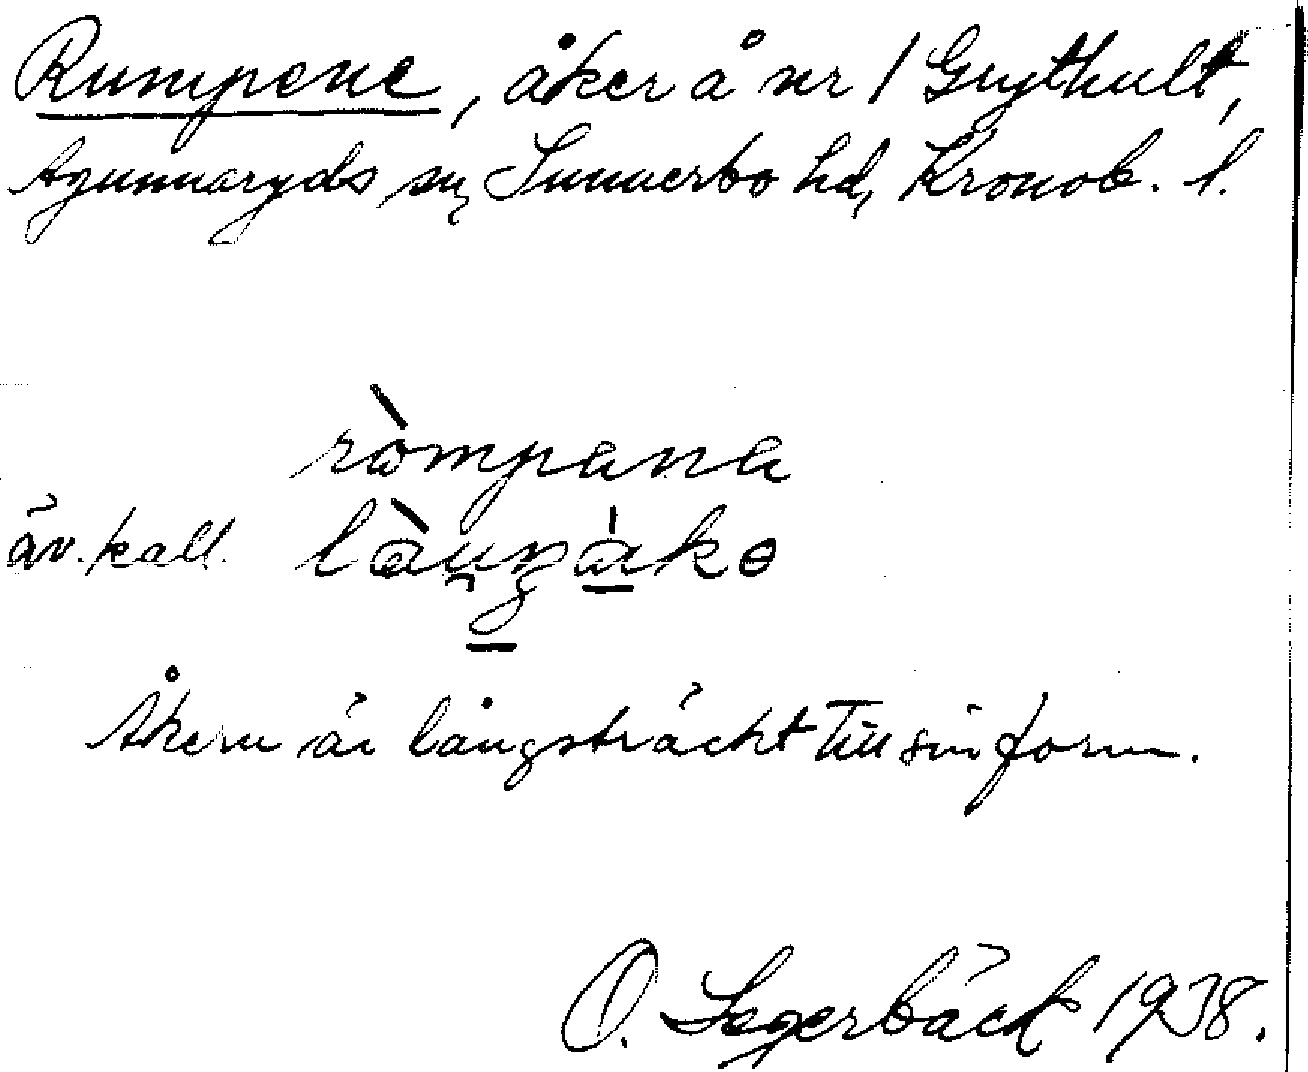 Rumpene, åker å nr 1 Grythult,
Agunnaryds sn, Sunnerbo hd, Kronob. l.
ròmpana
äv. kall. làŋgàkɵ
Åkern är långsträckt till sin form.
O. Segerbäck 1938.